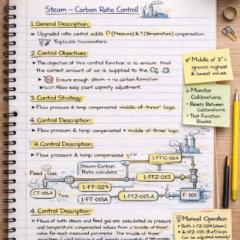 Steam – Carbon Ratio Control
1. General Description:
Upgraded ratio control adds P (Pressure) & T (Temperature) compensation.
Triplicate transmitters.
2. Control Objectives:
The objective of this control function is to ensure that
the correct amount of air is supplied to the
Ensure enough steam → no carbon formation
Allow easy plant capacity adjustment.
3. Control Strategy:
Flow pressure & temp compensated "middle-of-three" logic.
4. Control Description:
Flow pressure & temp compensated + middle-of-three" logic.
4. Control Description:
Flow pressure & temp compensated
Steam-Carbon
Ratio calculator
Feed Gas
CT-016A
1-FT-029
1-FT-015A
1-FFZ-015 A
F-101
4. Control Description:
Flows of both steam and Feed gas are calculated as pressure
and temperature compensated values from a "middle of three"
value for each measured parameter. The "middle of three"
Middle of 3" =
ignores highest
& lowest values
Monitor
Calibrations
Resets Between
Calibrations
Test Function
Blocks
Manual Operation